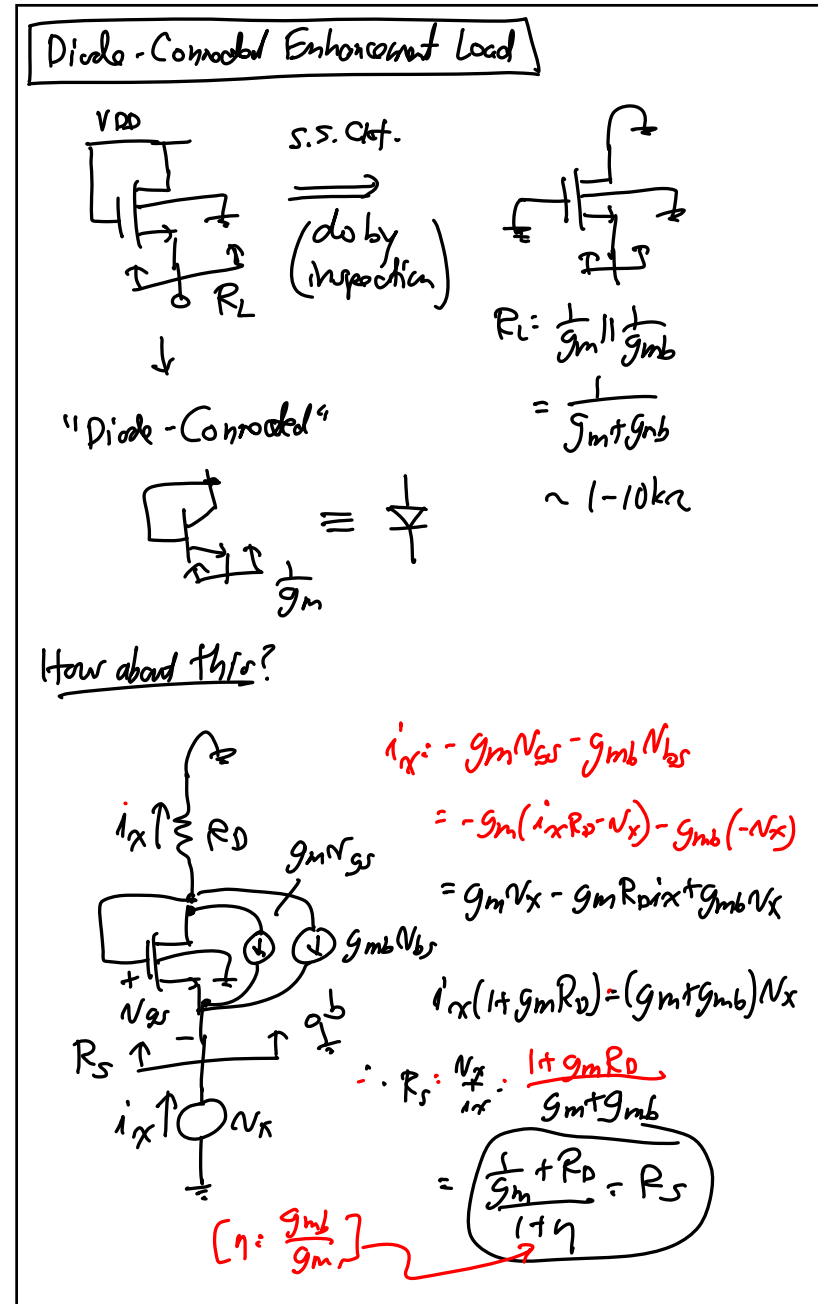 Diode-Connected Enhancement Load
VDD
s.s. ckt.
(do by inspection)
R_L
R_L = 1/g_m || 1/g_mb
= 1/(g_m + g_mb)
~ 1-10kΩ
"Diode-Connected"
≡
1/g_m
How about this?
i_x R_D
g_m v_gs
g_mb v_bs
+
v_gs
-
b
R_S
i_x v_x
i_x = -g_m v_gs - g_mb v_bs
= -g_m(i_x R_D - v_x) - g_mb(-v_x)
= g_m v_x - g_m R_D i_x + g_mb v_x
i_x(1 + g_m R_D) = (g_m + g_mb) v_x
∴ R_S = v_x/i_x = (1 + g_m R_D)/(g_m + g_mb)
= (1/g_m + R_D)/(1 + η) = R_S
[η = g_mb/g_m]